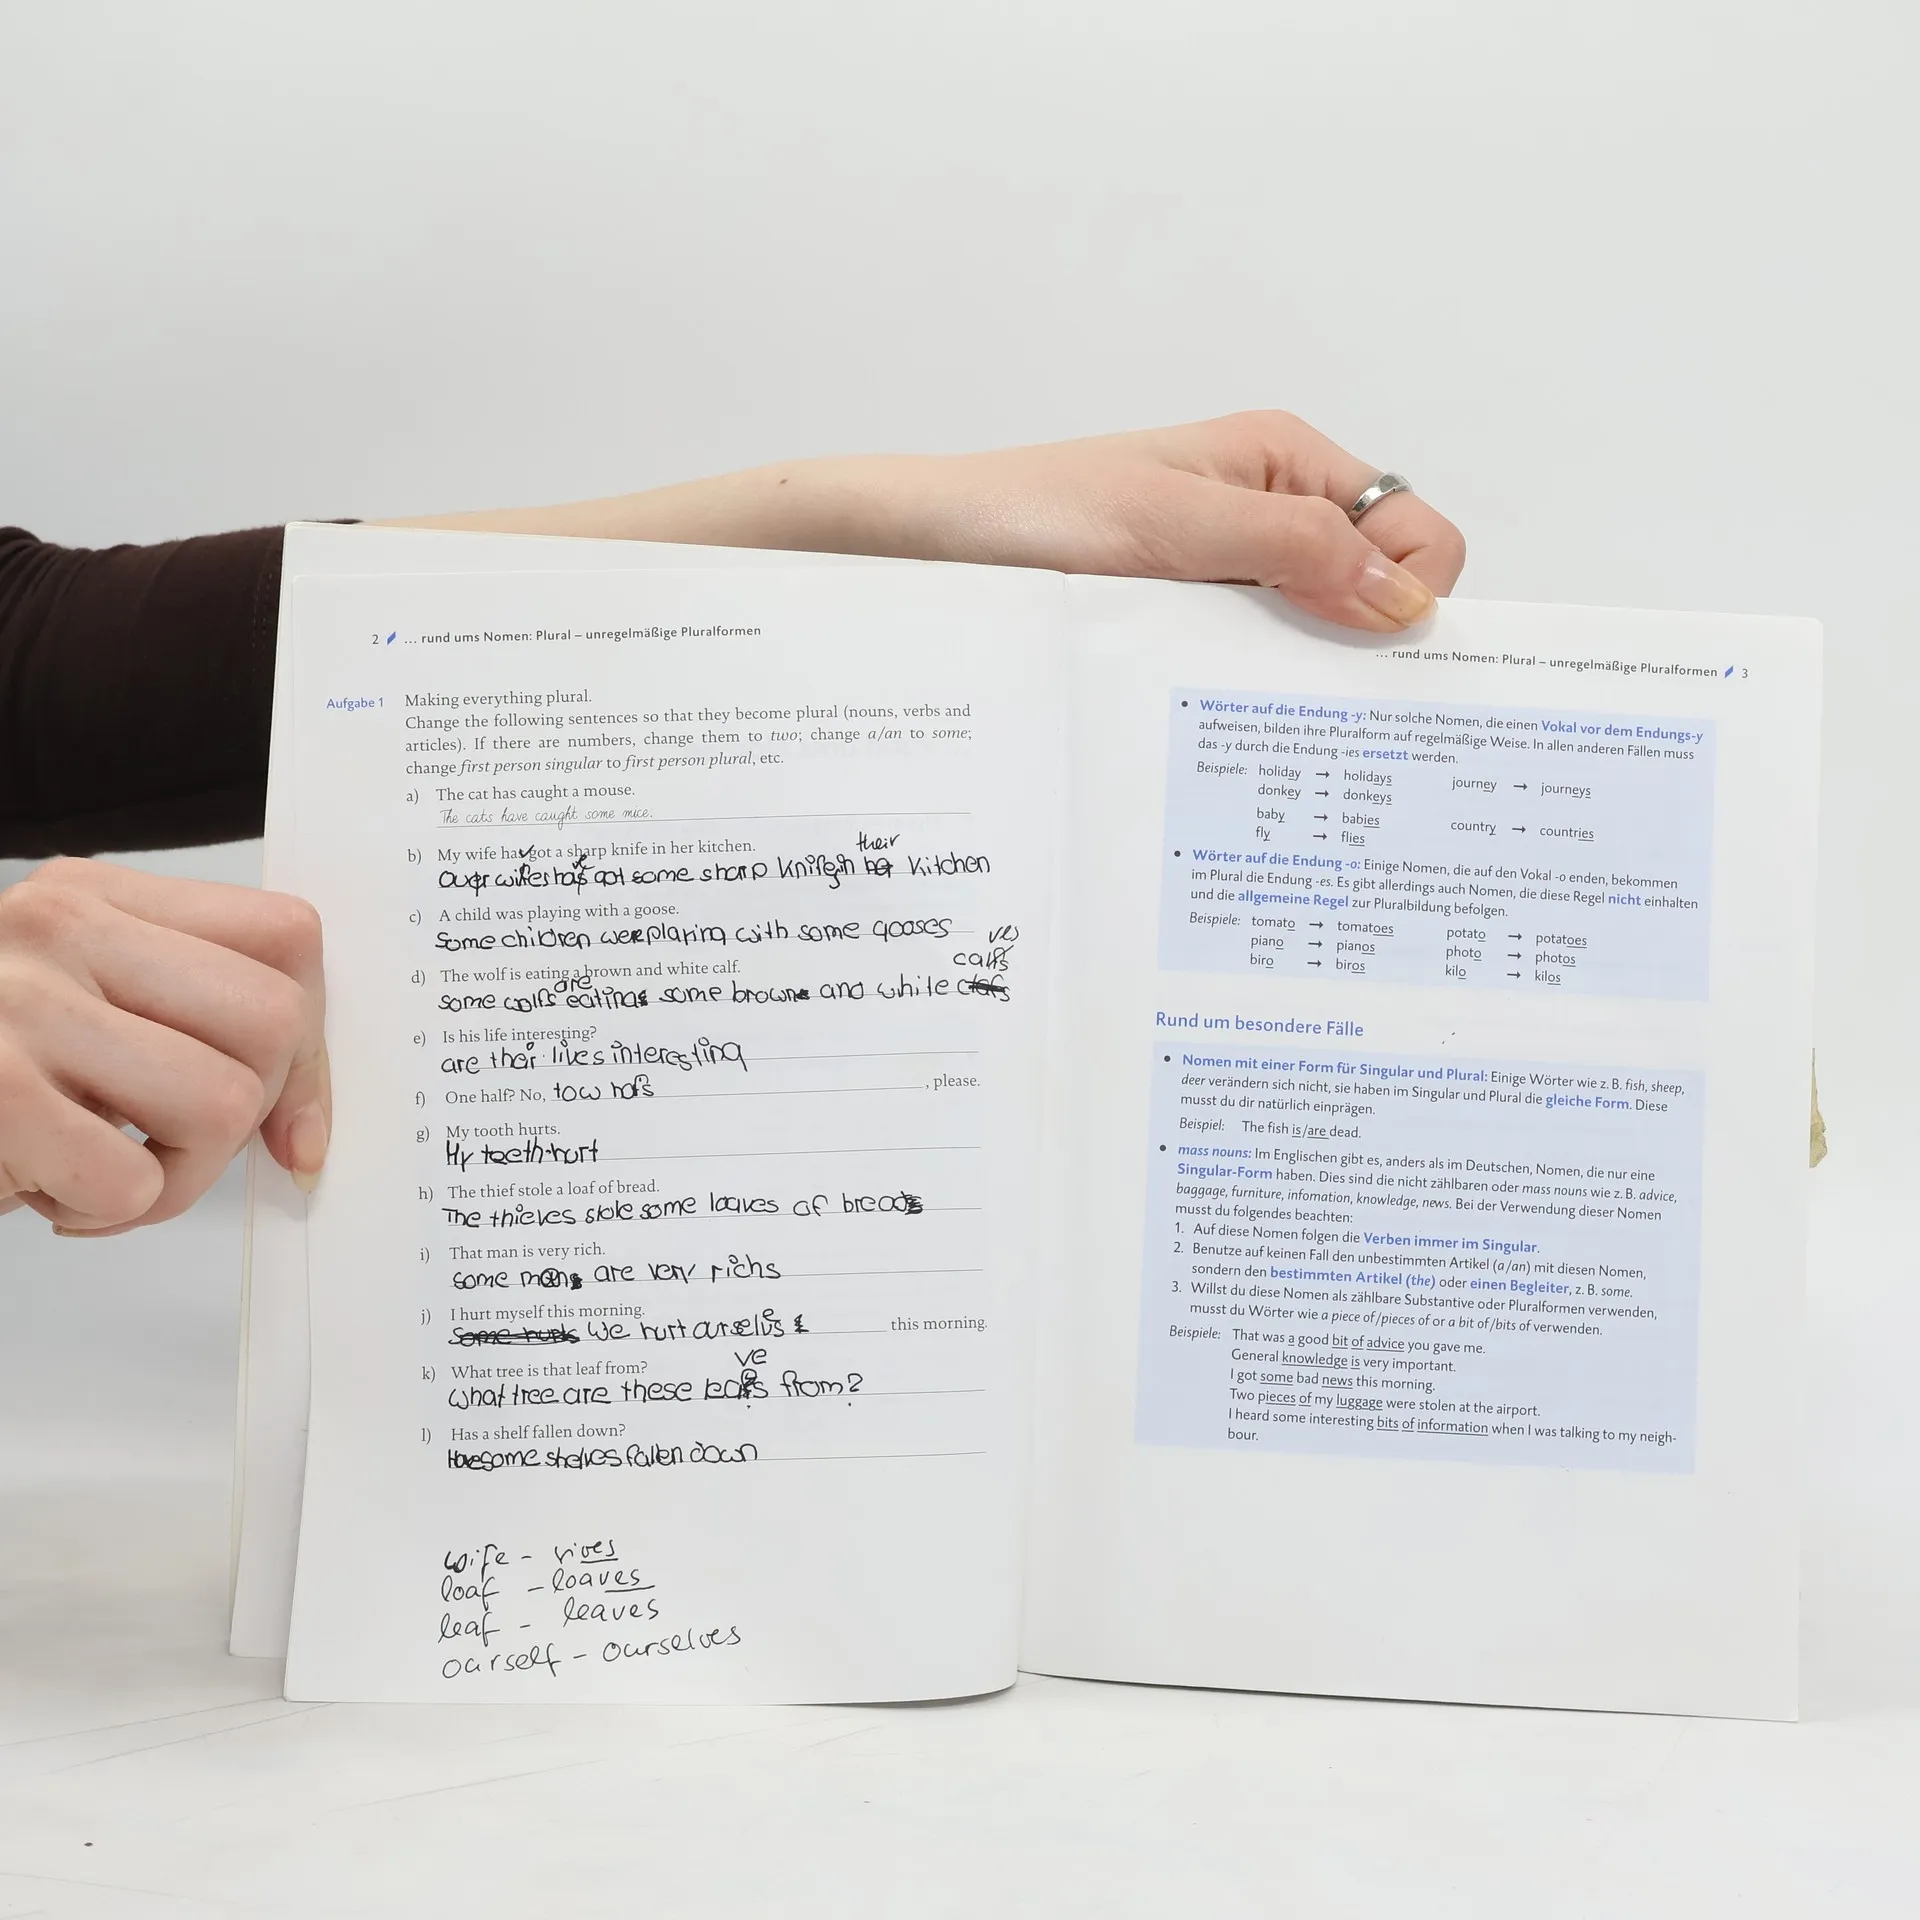 2 ... rund ums Nomen: Plural – unregelmäßige Pluralformen
Aufgabe 1 Making everything plural.
Change the following sentences so that they become plural (nouns, verbs and
articles). If there are numbers, change them to two; change a/an to some;
change first person singular to first person plural, etc.
a) The cat has caught a mouse.
The cats have caught some mice.
b) My wife has got a sharp knife in her kitchen.
their
wifes got some sharp in kitchen
c) A child was playing with a goose.
some children were playing with some gooses
ves
d) The wolf is eating a brown and white calf.
calfs
are
some wolfs eating some brown and white
e) Is his life interesting?
are their lives interesting
f) One half? No, tow hafs , please.
g) My tooth hurts.
My teeth hurt
h) The thief stole a loaf of bread.
The thieves stole some loaves of bread
i) That man is very rich.
some are very richs
j) I hurt myself this morning.
We hurt this morning.
k) What tree is that leaf from?
ve
what tree are these from?
l) Has a shelf fallen down?
Have some shelves fallen down
wife - vives
loaf - loaves
leaf - leaves
ourself - ourselves
... rund ums Nomen: Plural – unregelmäßige Pluralformen 3
• Wörter auf die Endung -y: Nur solche Nomen, die einen Vokal vor dem Endungs-y
aufweisen, bilden ihre Pluralform auf regelmäßige Weise. In allen anderen Fällen muss
das -y durch die Endung -ies ersetzt werden.
Beispiele: holiday → holidays journey → journeys
donkey → donkeys
baby → babies country → countries
fly → flies
• Wörter auf die Endung -o: Einige Nomen, die auf den Vokal -o enden, bekommen
im Plural die Endung -es. Es gibt allerdings auch Nomen, die diese Regel nicht einhalten
und die allgemeine Regel zur Pluralbildung befolgen.
Beispiele: tomato → tomatoes potato → potatoes
piano → pianos photo → photos
biro → biros kilo → kilos
Rund um besondere Fälle
• Nomen mit einer Form für Singular und Plural: Einige Wörter wie z. B. fish, sheep,
deer verändern sich nicht, sie haben im Singular und Plural die gleiche Form. Diese
musst du dir natürlich einprägen.
Beispiel: The fish is/are dead.
• mass nouns: Im Englischen gibt es, anders als im Deutschen, Nomen, die nur eine
Singular-Form haben. Dies sind die nicht zählbaren oder mass nouns wie z. B. advice,
baggage, furniture, infomation, knowledge, news. Bei der Verwendung dieser Nomen
musst du folgendes beachten:
1. Auf diese Nomen folgen die Verben immer im Singular.
2. Benutze auf keinen Fall den unbestimmten Artikel (a/an) mit diesen Nomen,
sondern den bestimmten Artikel (the) oder einen Begleiter, z. B. some.
3. Willst du diese Nomen als zählbare Substantive oder Pluralformen verwenden,
musst du Wörter wie a piece of/pieces of or a bit of/bits of verwenden.
Beispiele: That was a good bit of advice you gave me.
General knowledge is very important.
I got some bad news this morning.
Two pieces of my luggage were stolen at the airport.
I heard some interesting bits of information when I was talking to my neigh-
bour.